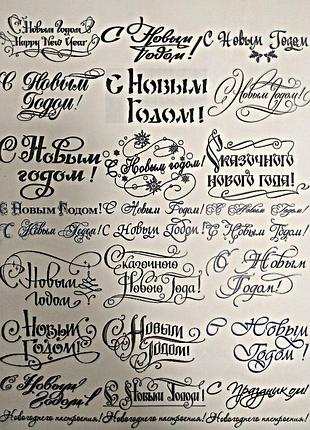 С Новым Годом!
Happy New Year
С Новым
Годом!
С Новым Годом
С Новым
Годом!
С Новым
Годом!
С Новым Годом!
С Новым
годом!
С Новым годом!
Сказочного
нового года!
С Новым Годом! С Новым Годом! С Новым Годом!
С Новым Годом! С Новым Годом! С Новым Годом!
С Новым
Годом
Сказочного
Нового Года!
С Новым
Годом!
С Новым
Годом!
С Новым
Годом!
С Новым
Годом!
С Новым
Годом!
С Новым Годом!
С Праздником!
Новогоднего настроения! Новогоднего настроения! Новогоднего настроения!